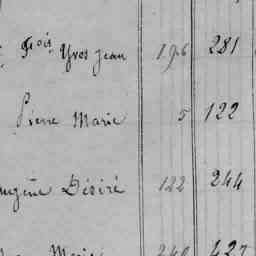 Fois Yves Jean 196 281
Pierre Marie 5 122
Eugène Désiré 122 244
Marie 240 427